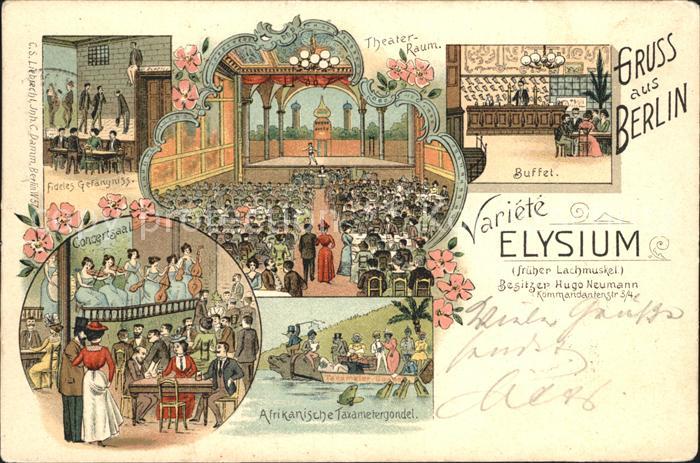 C. S. Liebrecht, Joh. C. Damm, Berlin W 57
Fideles Gefängniss.
Theater-
Raum.
Buffet.
GRUSS
aus
BERLIN
Variété
ELYSIUM
(früher Lachmuskel.)
Besitzer Hugo Neumann
Kommandantenstr 3/4.
Concertsaal
Taxameter-
Afrikanische Taxametergondel.
Viele Grüße